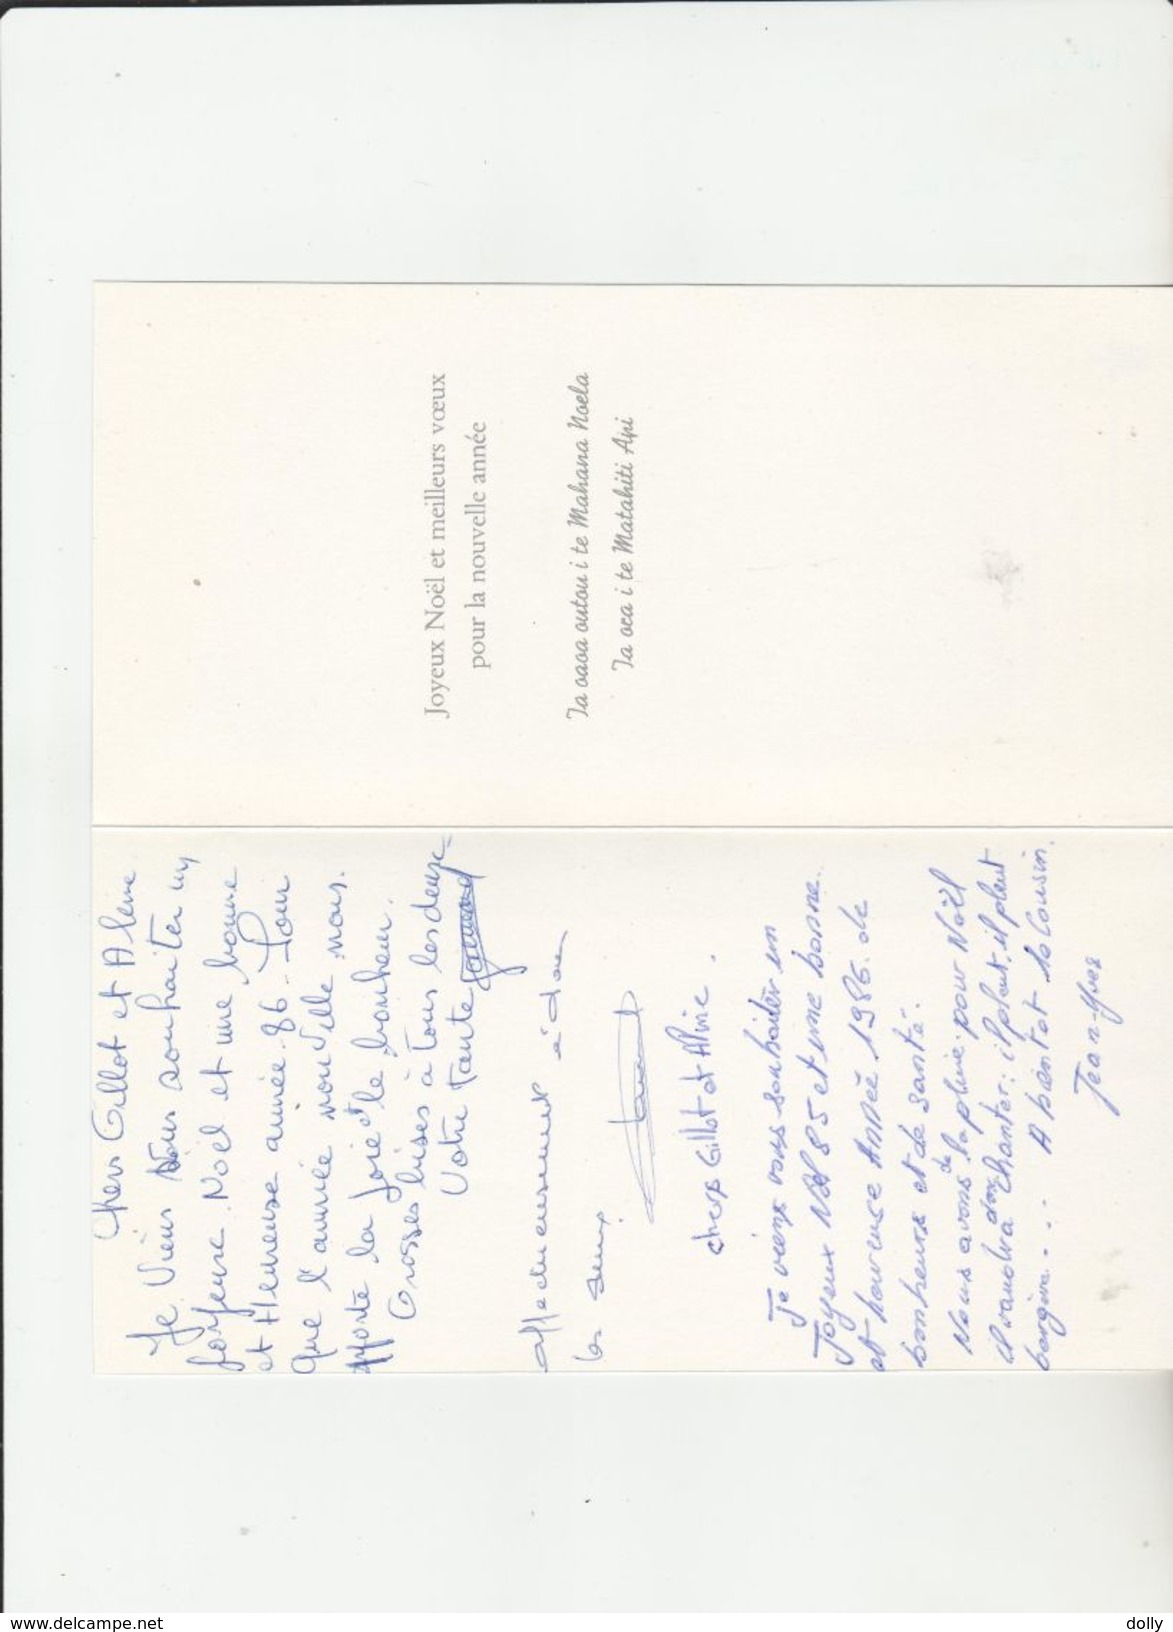 Chers Gillot et Aline
Je Viens Vous souhaiter un
joyeuse Noël et une bonne
et Heureuse année 86 - Pour
que l'année nouvelle nous
apporte la Joie et le bonheur.
Grosses bises à tous les deux
Votre tante
affectueusement à tous
les deux.
chers Gillot et Aline.
Je viens vous souhaiter un
Joyeux Noël 85 et une bonne
et heureuse Année 1986. de
bonheurs et de santé.
Nous avons de la pluie pour Noël
il vaudra donc chanter: il pleut, il pleut
bergère... A bientot le Cousin.
Jean-Yves
Joyeux Noël et meilleurs vœux
pour la nouvelle année
Ia oaoa outou i te Mahana Noela
Ia oea i te Matahiti Api
www.delcampe.net
dolly